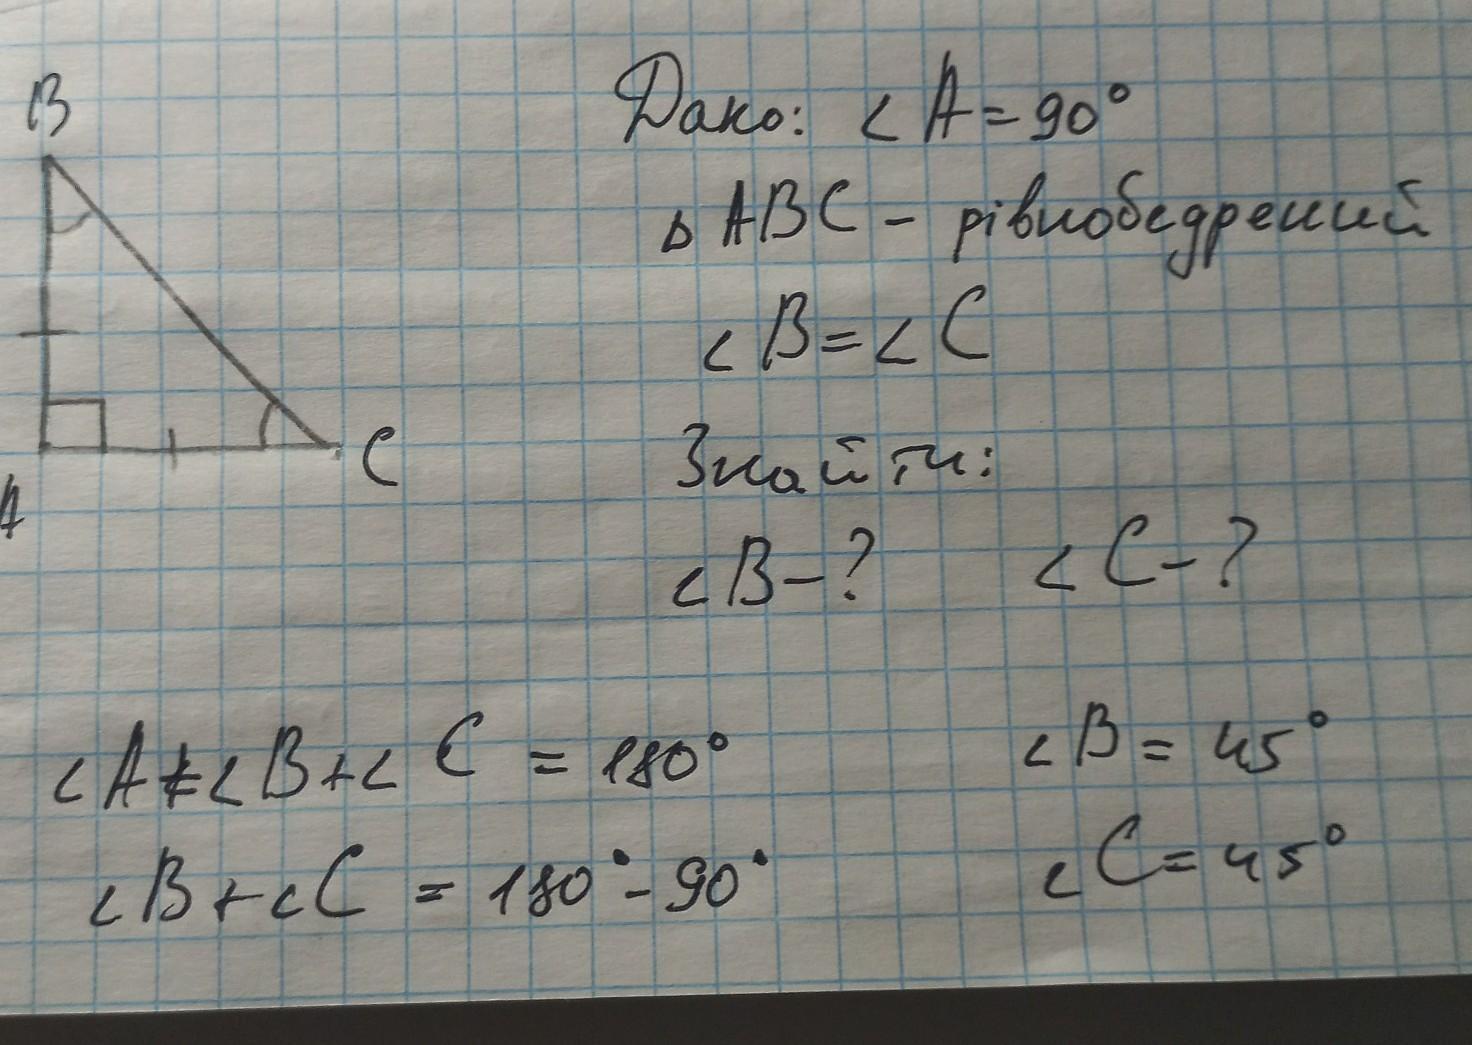 B
Дано: ∠A=90°
△ABC – рівнобедрений
∠B=∠C
A
C
Знайти:
∠B–? ∠C–?
∠A+∠B+∠C = 180°
∠B = 45°
∠B+∠C = 180°–90°
∠C = 45°